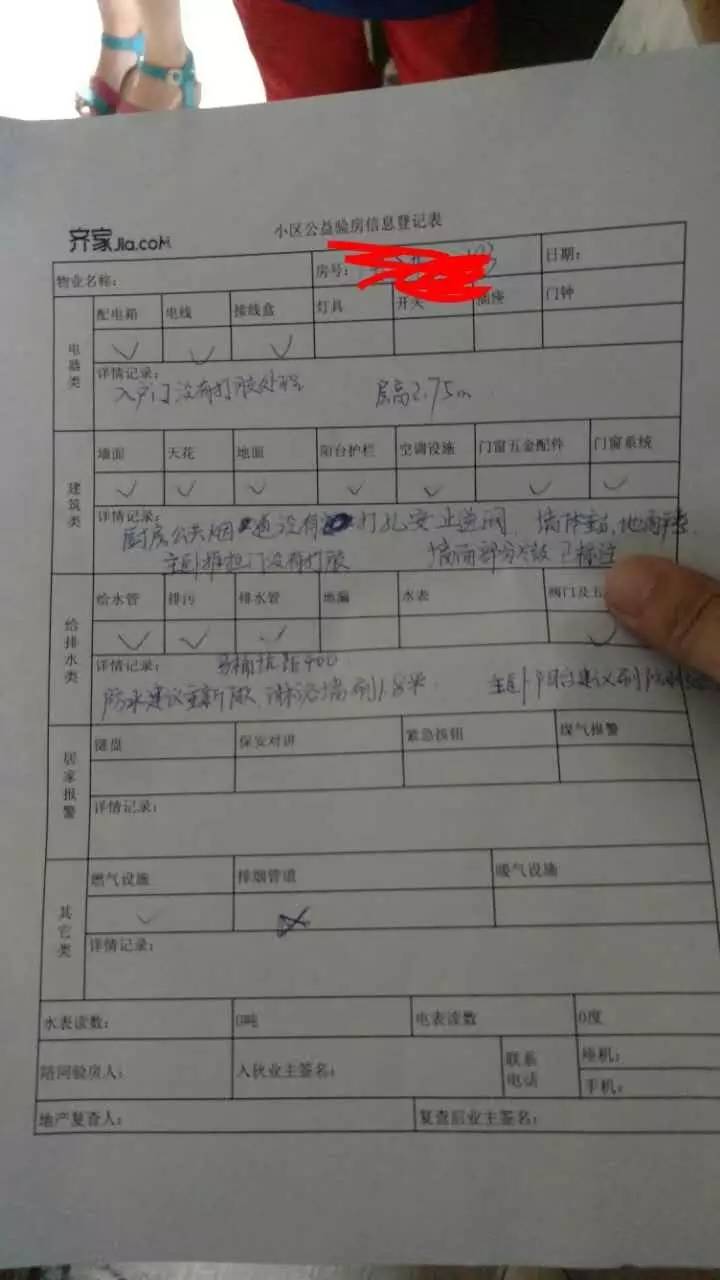 齐家 Jia.com
小区公益验房信息登记表
物业名称： 房号： 日期：
电器类
配电箱 电线 接线盒 灯具 开关 插座 门钟
✓ ✓ ✓
详情记录：
入户门没有打胶处理 层高2.75m
建筑类
墙面 天花 地面 阳台护栏 空调设施 门窗五金配件 门窗系统
✓ ✓ ✓ ✓ ✓ ✓ ✓
详情记录：
厨房公共烟道没有打孔安止逆阀 墙体 地面
主卧推拉门没有打胶 墙面部分 已标注
给排水类
给水管 排污 排水管 地漏 水表 阀门及五
✓ ✓ ✓ ✓
详情记录： 马桶坑距400
防水建议重新做，淋浴墙刷1.8米 主卧阳台建议刷防水
居家报警
键盘 保安对讲 紧急按钮 煤气报警
详情记录：
其它类
燃气设施 排烟管道 暖气设施
✓ ✗
详情记录：
水表读数： 0吨 电表读数 0度
陪同验房人： 入伙业主签名： 联系电话 座机：
手机：
地产复查人： 复查后业主签名：